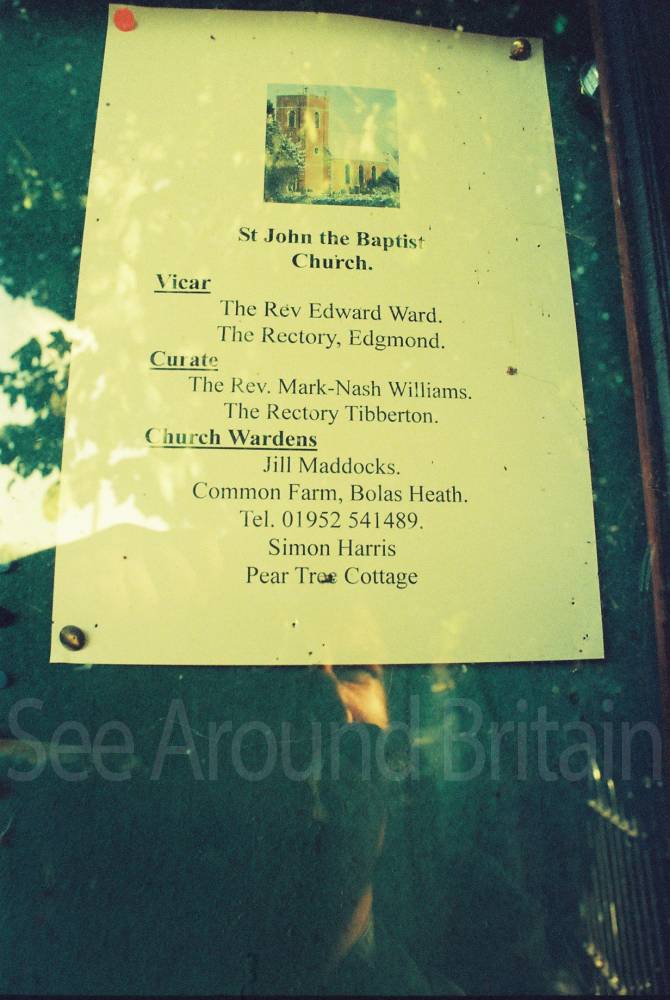 St John the Baptist
Church.
Vicar
The Rev Edward Ward.
The Rectory, Edgmond.
Curate
The Rev. Mark-Nash Williams.
The Rectory Tibberton.
Church Wardens
Jill Maddocks.
Common Farm, Bolas Heath.
Tel. 01952 541489.
Simon Harris
Pear Tree Cottage
See Around Britain